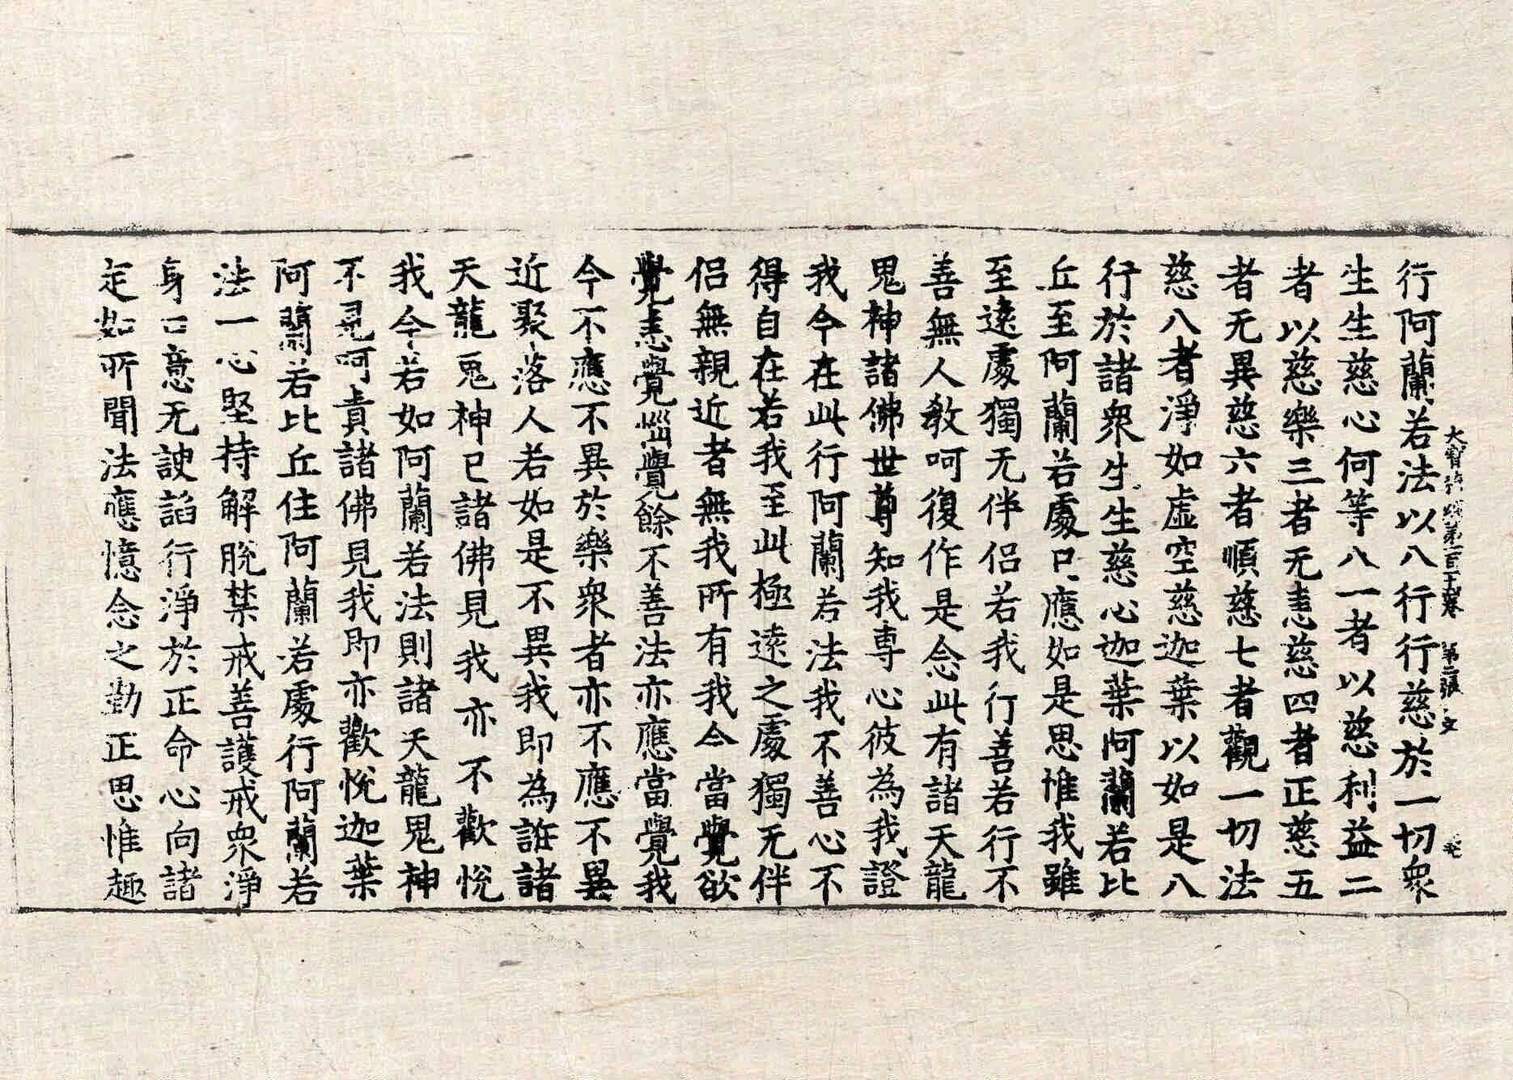 大寶積經第一百十四卷 第二張 文
行阿蘭若法以八行行慈於一切衆
生生慈心何等八一者以慈利益二
者以慈樂三者无恚慈四者正慈五
者无異慈六者順慈七者觀一切法
慈八者淨如虛空慈迦葉以如是八
行於諸衆生生慈心迦葉阿蘭若比
丘至阿蘭若處已應如是思惟我雖
至遠處獨无伴侶若我行善若行不
善無人教呵復作是念此有諸天龍
鬼神諸佛世尊知我專心彼為我證
我今在此行阿蘭若法我不善心不
得自在若我至此極遠之處獨无伴
侶無親近者無我所有我今當覺欲
覺恚覺惱覺餘不善法亦應當覺我
今不應不異於樂衆者亦不應不異
近聚落人若如是不異我即為誑諸
天龍鬼神已諸佛見我亦不歡悅
我今若如阿蘭若法則諸天龍鬼神
不見呵責諸佛見我即亦歡悅迦葉
阿蘭若比丘住阿蘭若處行阿蘭若
法一心堅持解脫禁戒善護戒衆淨
身口意无諛諂行淨於正命心向諸
定如所聞法應憶念之勤正思惟趣